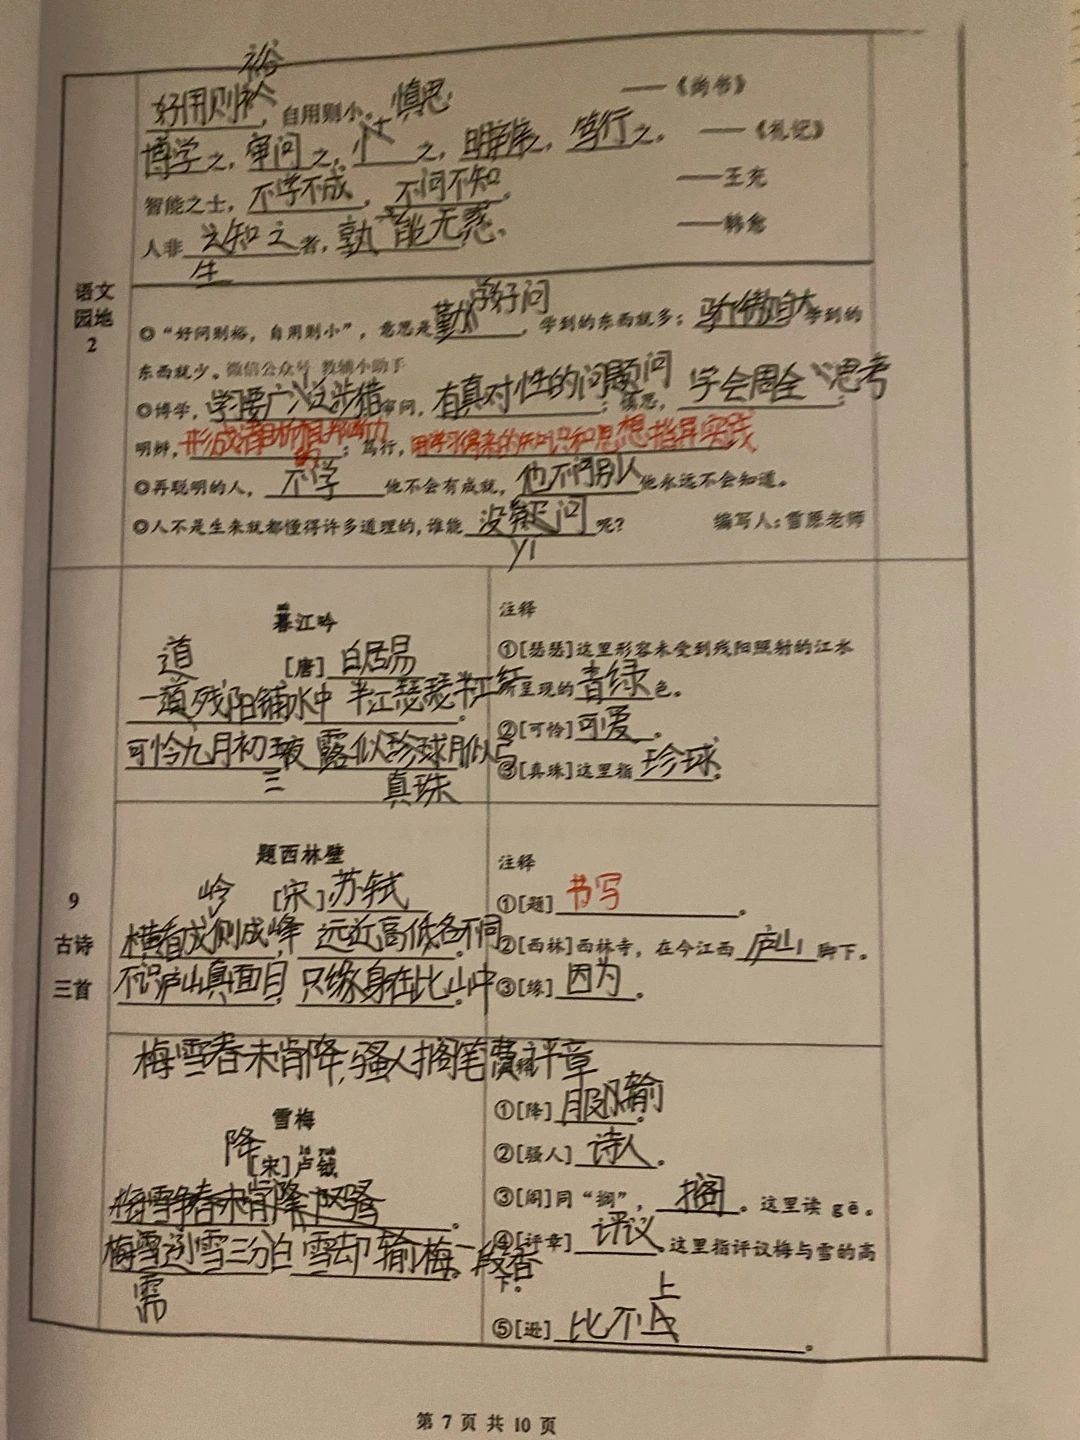 裕
好用则裕，自用则小。 慎思 ——《尚书》
博学之，审问之，之，明辨之，笃行之。 ——《礼记》
智能之士，不学不成，不问不知。 ——王充
人非之知之者，孰能无惑。 ——韩愈
生
语文园地2
◎“好问则裕，自用则小”，意思是勤学好问，学到的东西就多；骄傲自大学到的
东西就少。微信公众号 教辅小助手
◎博学，学要广泛涉猎；审问，有真对性的问题问；慎思，学会周全思考；
明辨，形成清晰的判断力；笃行，用学习得来的知识和思想指导实践
◎再聪明的人，不学他不会有成就，他不问别人他永远不会知道。
◎人不是生来就都懂得许多道理的，谁能没有疑问呢？ 编写人：雪原老师
yi
暮江吟
道 [唐]白居易
一道残阳铺水中 半江瑟瑟半江红。
可怜九月初三夜 露似珍球月似弓
三 真珠
注释
①[瑟瑟]这里形容未受到残阳照射的江水
所呈现的青绿色。
②[可怜]可爱。
③[真珠]这里指珍球。
9
古诗
三首
题西林壁
岭 [宋]苏轼
横看成侧成峰，远近高低各不同
不识庐山真面目，只缘身在此山中。
注释
①[题]书写。
②[西林]西林寺，在今江西庐山脚下。
③[缘]因为。
梅雪春未肯降，骚人搁笔费评章
雪梅
降 [宋]卢钺
梅雪争春未肯降
梅雪逊雪三分白 雪却输梅一段香
需
①[降]服输。
②[骚人]诗人。
③[阁]同“搁”，搁。这里读 gē。
④[评章]评议。这里指评议梅与雪的高
下。
上
⑤[逊]比不。
第 7 页 共 10 页